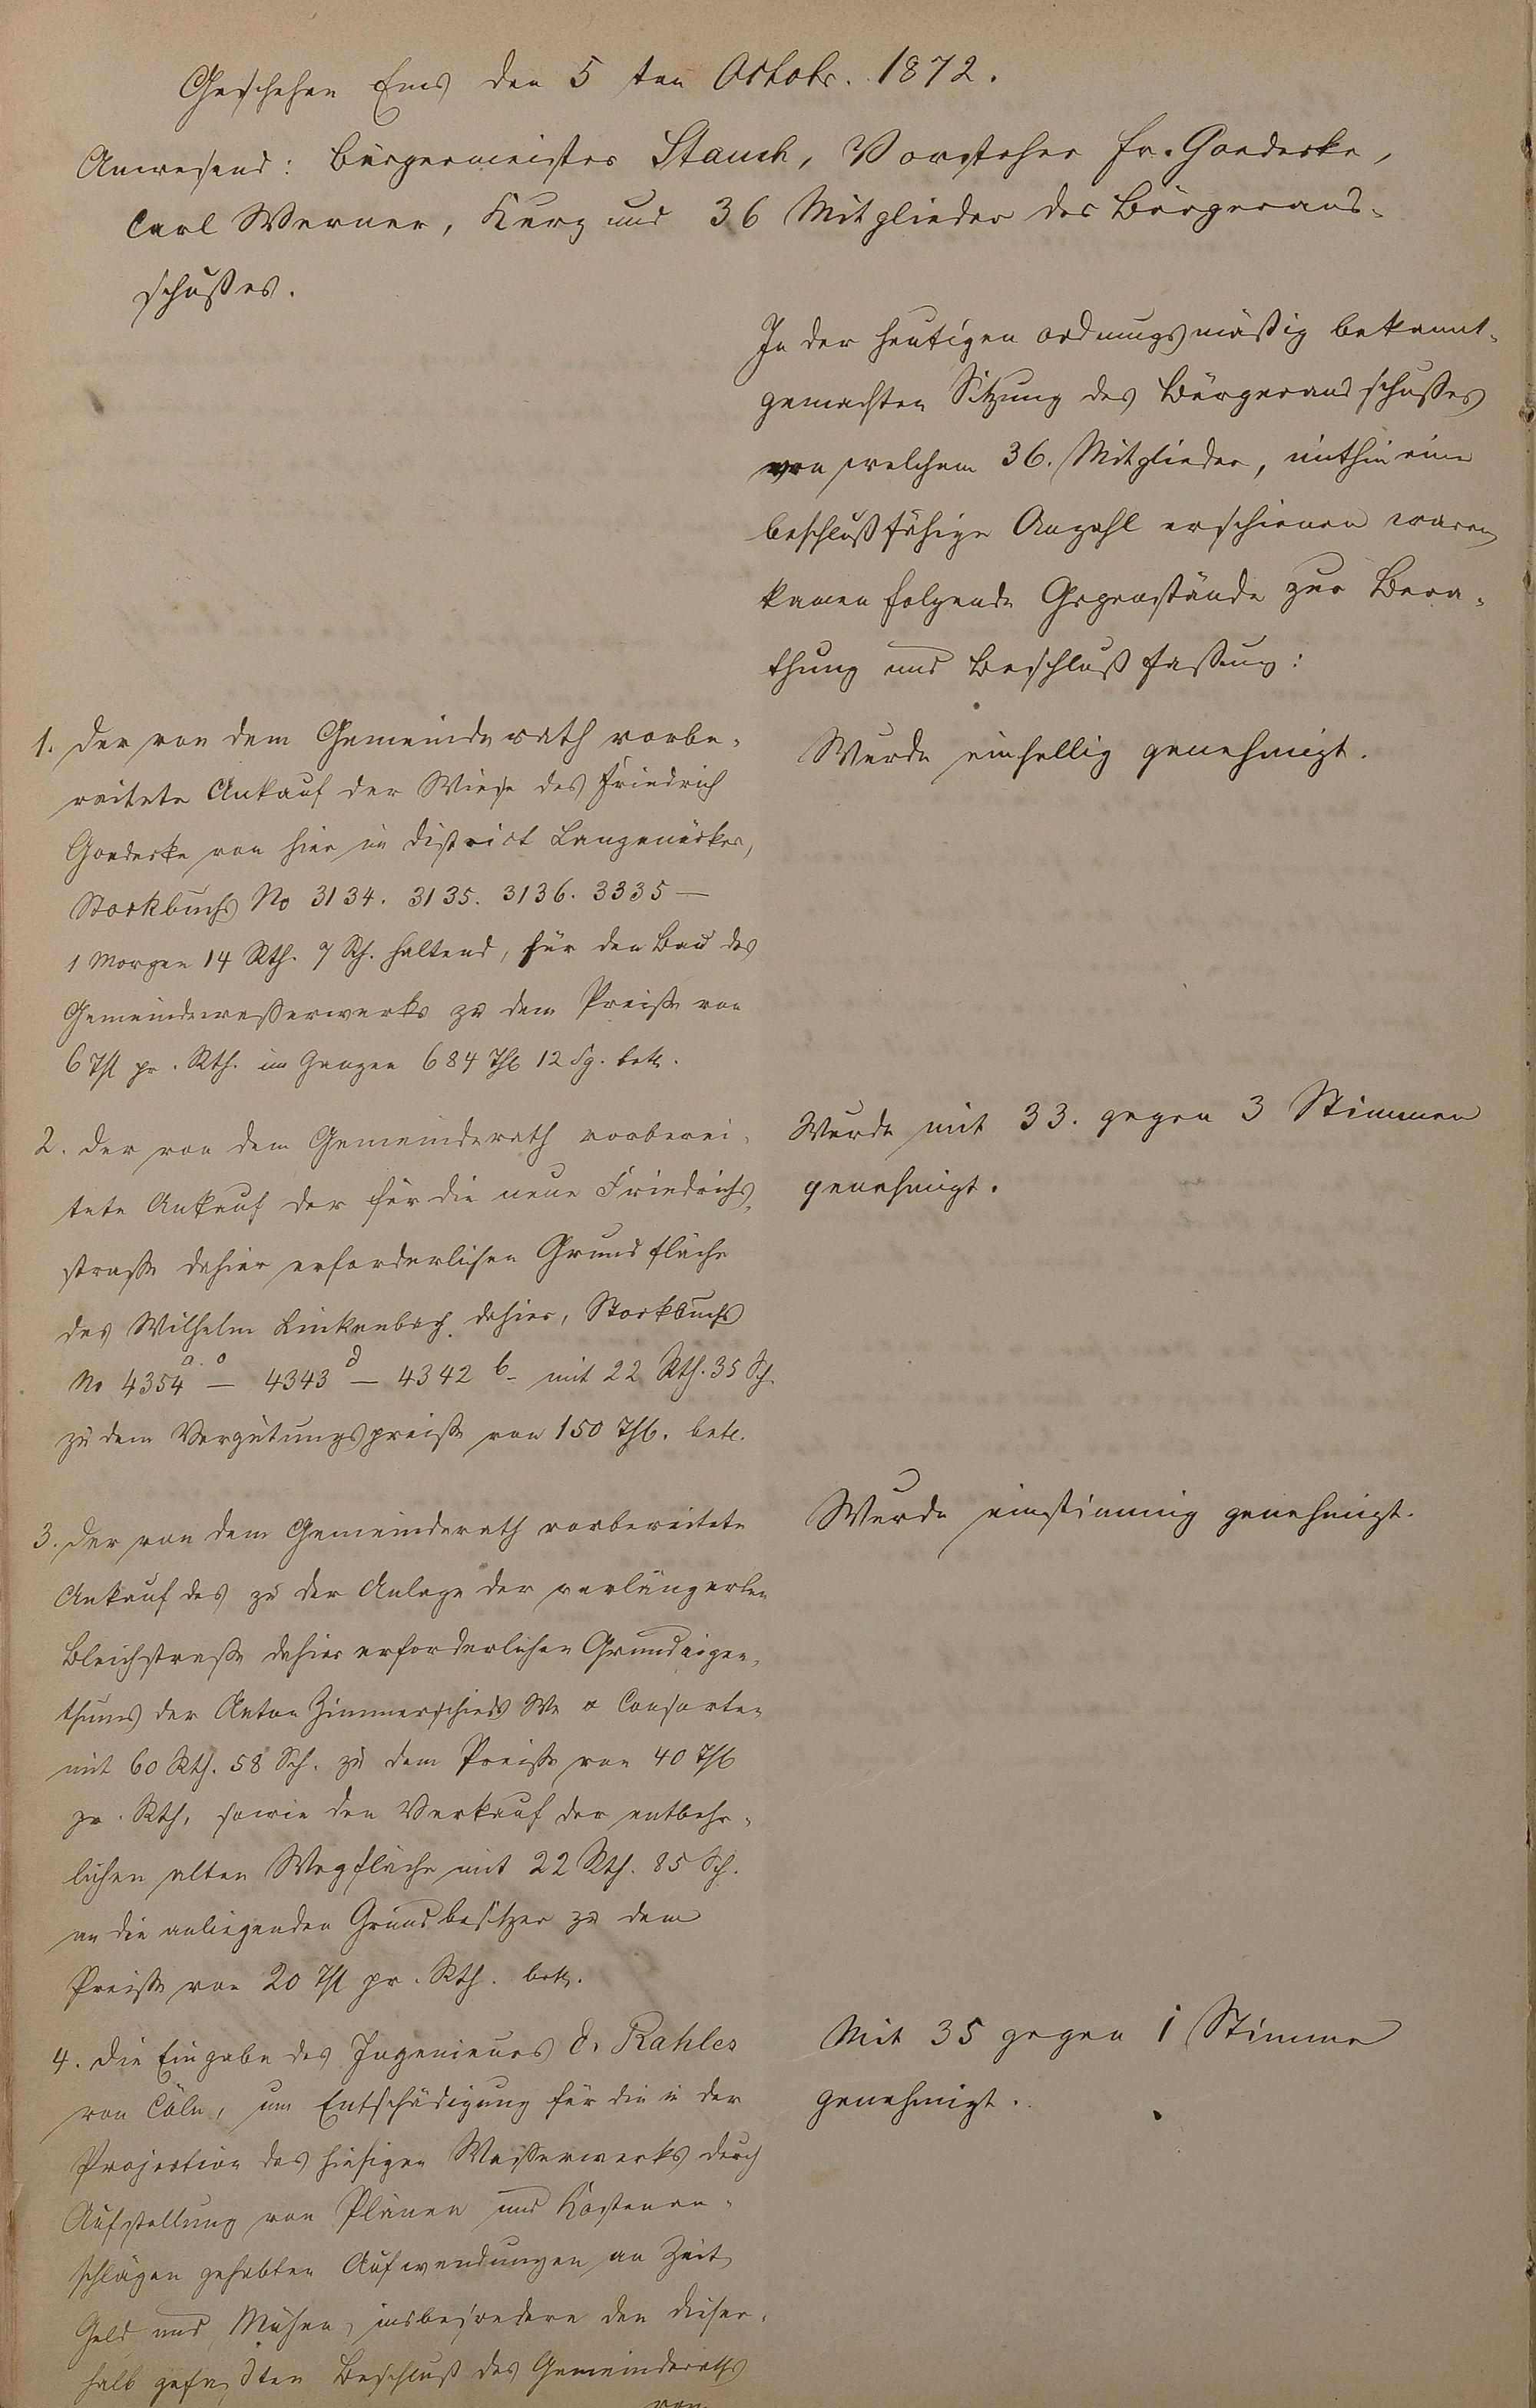 Geschehen Ems den 5ten Octobr. 1872.
Anwesend: Bürgermeister Stauch, Vorsteher Fr. Goedecke,
Carl Werner, Kurz und 36 Mitglieder des Bürgeraus-
schußes.
In der heutigen ordnungsmäßig bekannt-
gemachten Sitzung des Bürgerausschußes
von welchem 36. Mitglieder, mithin eine
beschlußfähige Anzahl erschienen waren
kamen folgende Gegenstände zur Bera-
thung und Beschlußfaßung:
1. Der von dem Gemeinderath vorbe-
reitete Ankauf der Wiese des Friedrich
Goedecke von hier im District Langenäcker,
Stockbuchs No 3134. 3135. 3136. 3335 —
1 Morgen 14 Rth. 7 Sch. haltend, für den Bau des
Gemeindewaßerwerks zu dem Preiße von
6 Thl pr. Rth. im Ganzen 684 Thl 12 Sg. betr.
Wurde einhellig genehmigt.
2. Der von dem Gemeinderath vorberei-
tete Ankauf der für die neue Friedrichs-
straße dahier erforderlichen Grundfläche
des Wilhelm Linkenbach dahier, Stockbuchs
No 4354 a.c — 4343 d — 4342 b - mit 22 Rth. 35 Sch.
zu dem Vergütungspreiße von 150 Thl. betr.
Wurde mit 33. gegen 3 Stimmen
genehmigt.
3. Der von dem Gemeinderath vorbereitete
Ankauf des zu der Anlage der verlängerten
Bleichstraße dahier erforderlichen Grundeigen-
thums der Anton Zimmerschieds We & Consorten
mit 60 Rth. 58 Sch. zu dem Preiße von 40 Thl
pr. Rth, sowie den Verkauf der entbehr-
lichen alten Wegfläche mit 22 Rth. 85 Sch.
an die anliegenden Grundbesitzer zu dem
Preiße von 20 Thl pr. Rth. betr.
Wurde einstimmig genehmigt.
4. Die Eingabe des Ingenieurs C. Rahles
von Cöln, um Entschädigung für die in der
Projection des hiesigen Waßerwerks durch
Aufstellung von Plänen und Kostenan-
schlägen gehabten Aufwendungen an Zeit,
Geld und Mühen, insbesondere den dieser-
halb gefaßten Beschluß des Gemeinderaths
von
Mit 35 gegen 1 Stimme
genehmigt.